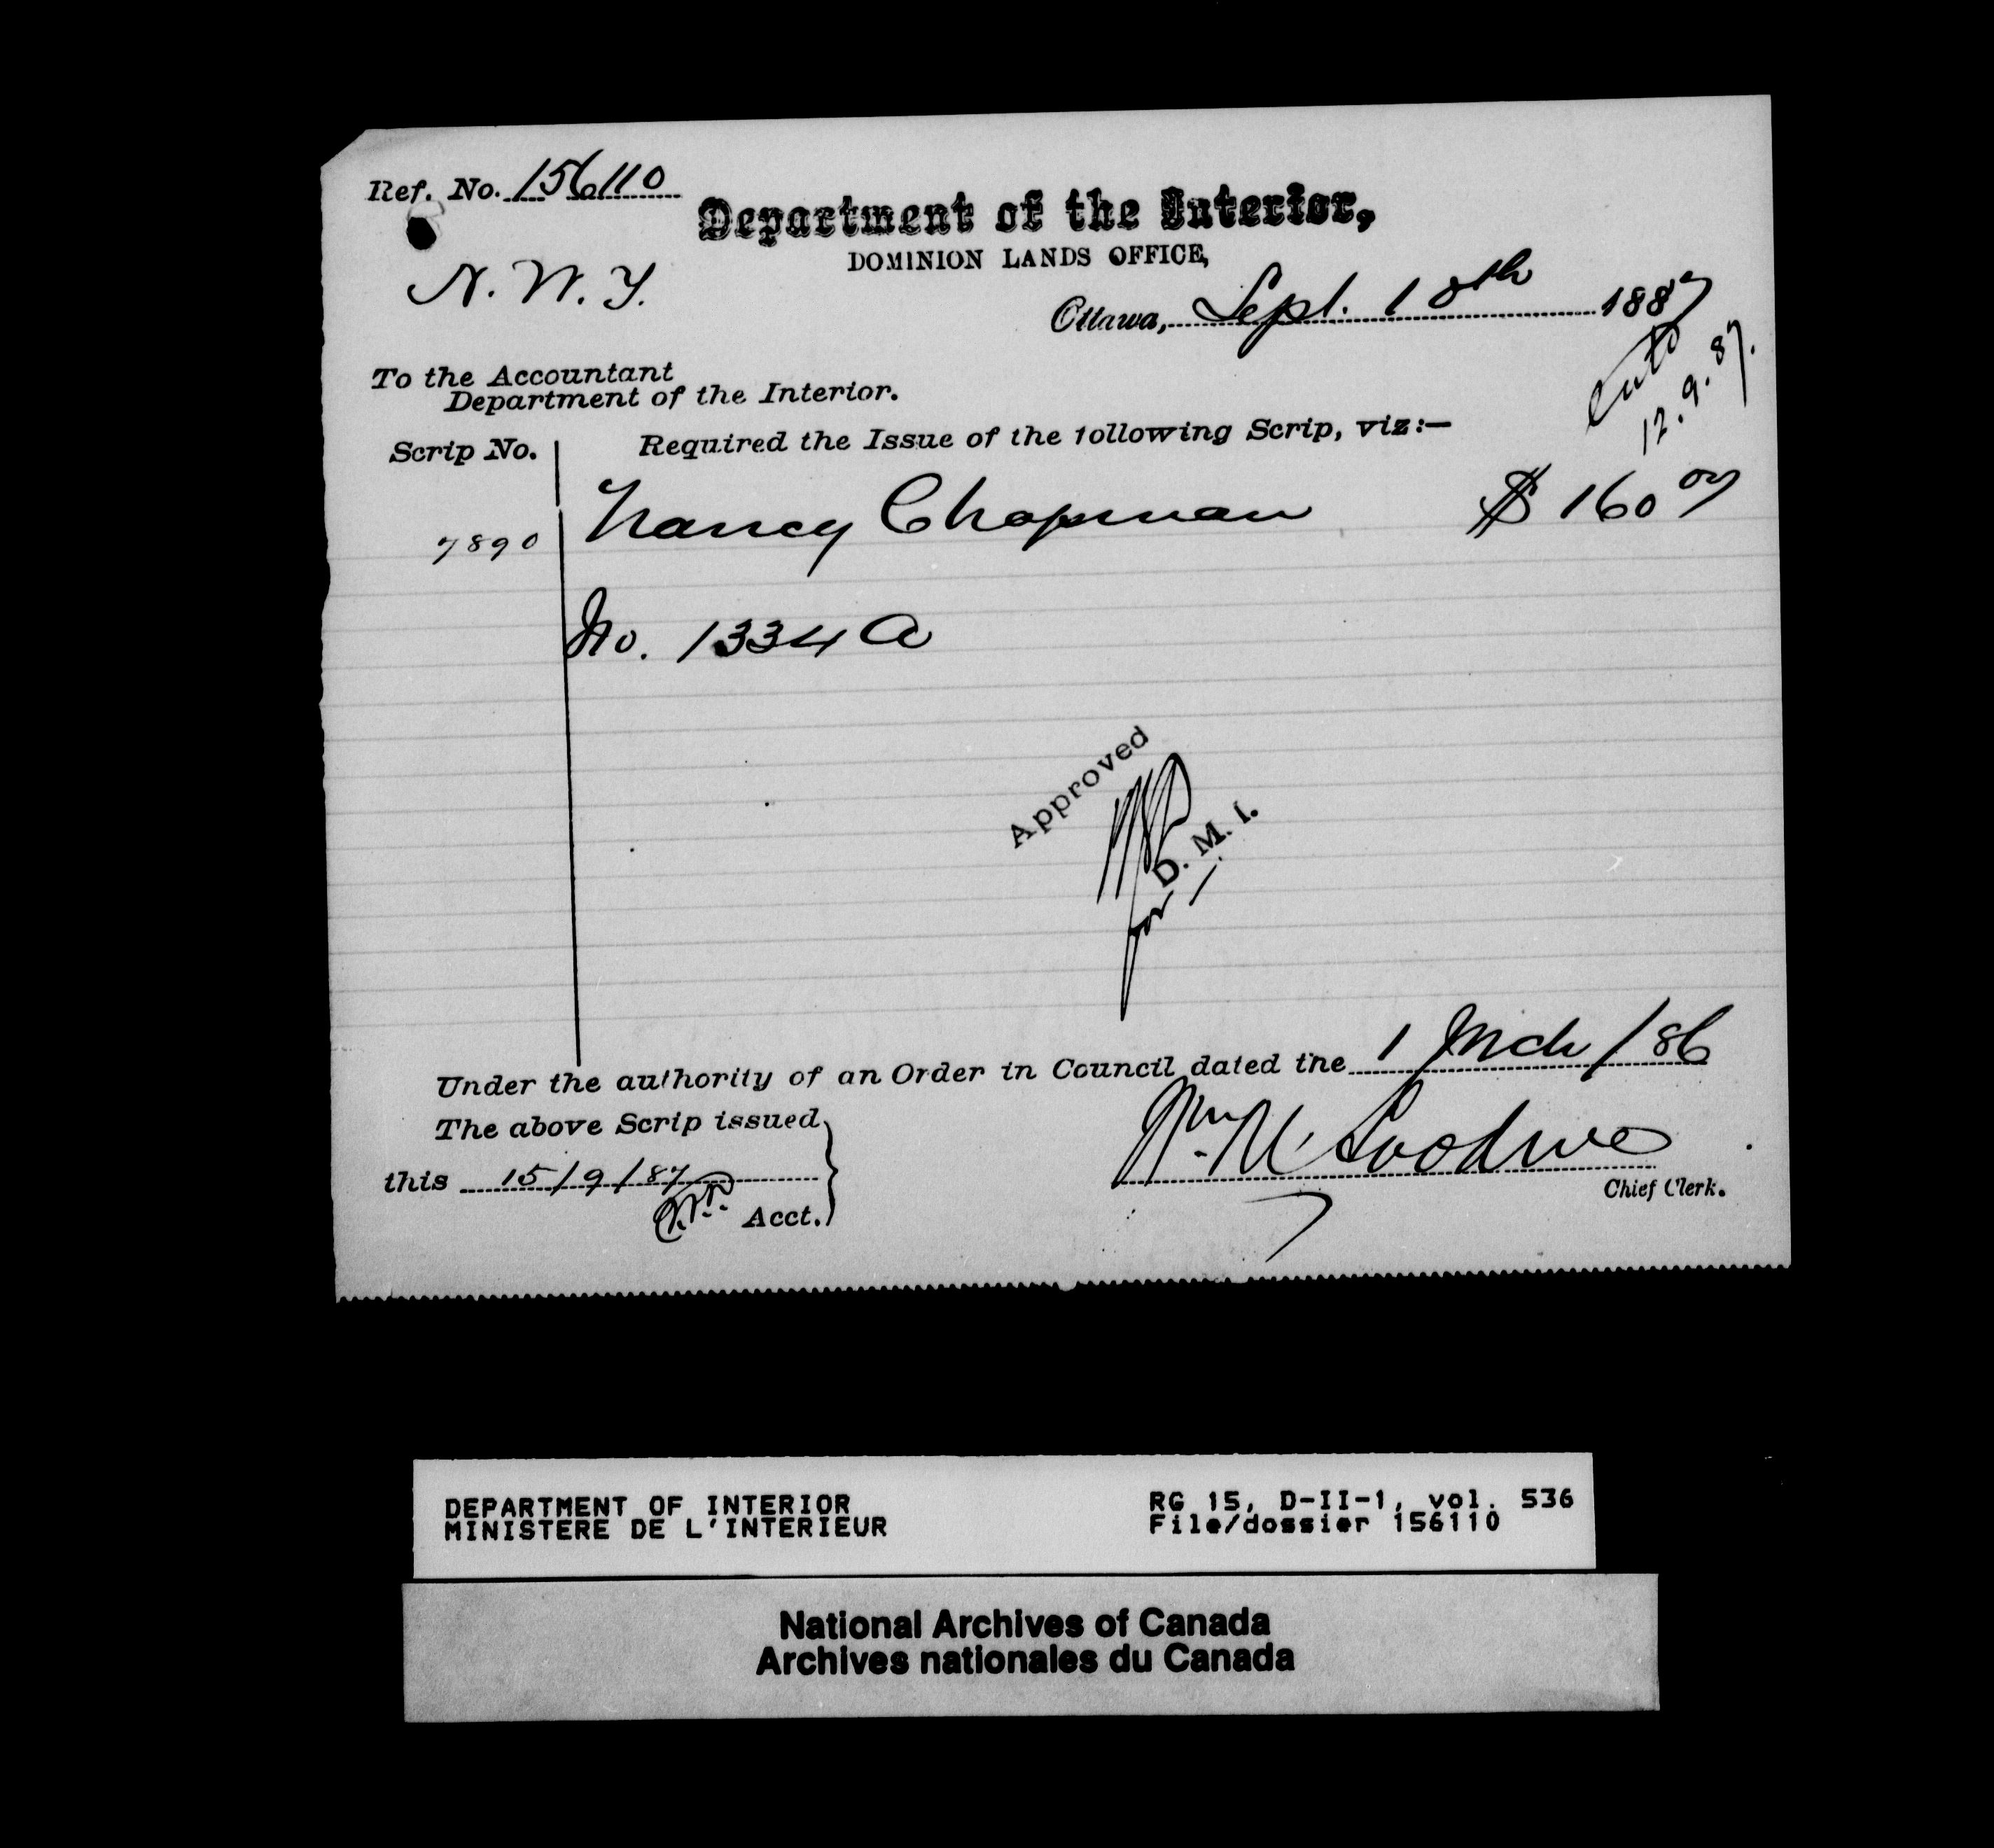 Ref. No. 156110
Department of the Interior,
DOMINION LANDS OFFICE,
N. W. T.
Ottawa, Sept. 10th 1887
12.9.87.
To the Accountant
Department of the Interior.
Scrip No. Required the Issue of the following Scrip, viz:—
7890 Nancy Chapman $ 160 00
No. 1334 A
Approved
for D. M. I.
Under the authority of an Order in Council dated the 1 Mch / 86
The above Scrip issued
this 15/9/87
Acct.
Wm. M. Goodeve
Chief Clerk.
DEPARTMENT OF INTERIOR
MINISTERE DE L'INTERIEUR
RG 15, D-II-1, vol. 536
File/dossier 156110
National Archives of Canada
Archives nationales du Canada